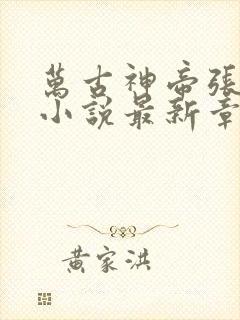 萬古神帝張
小說最新章
黃家洪